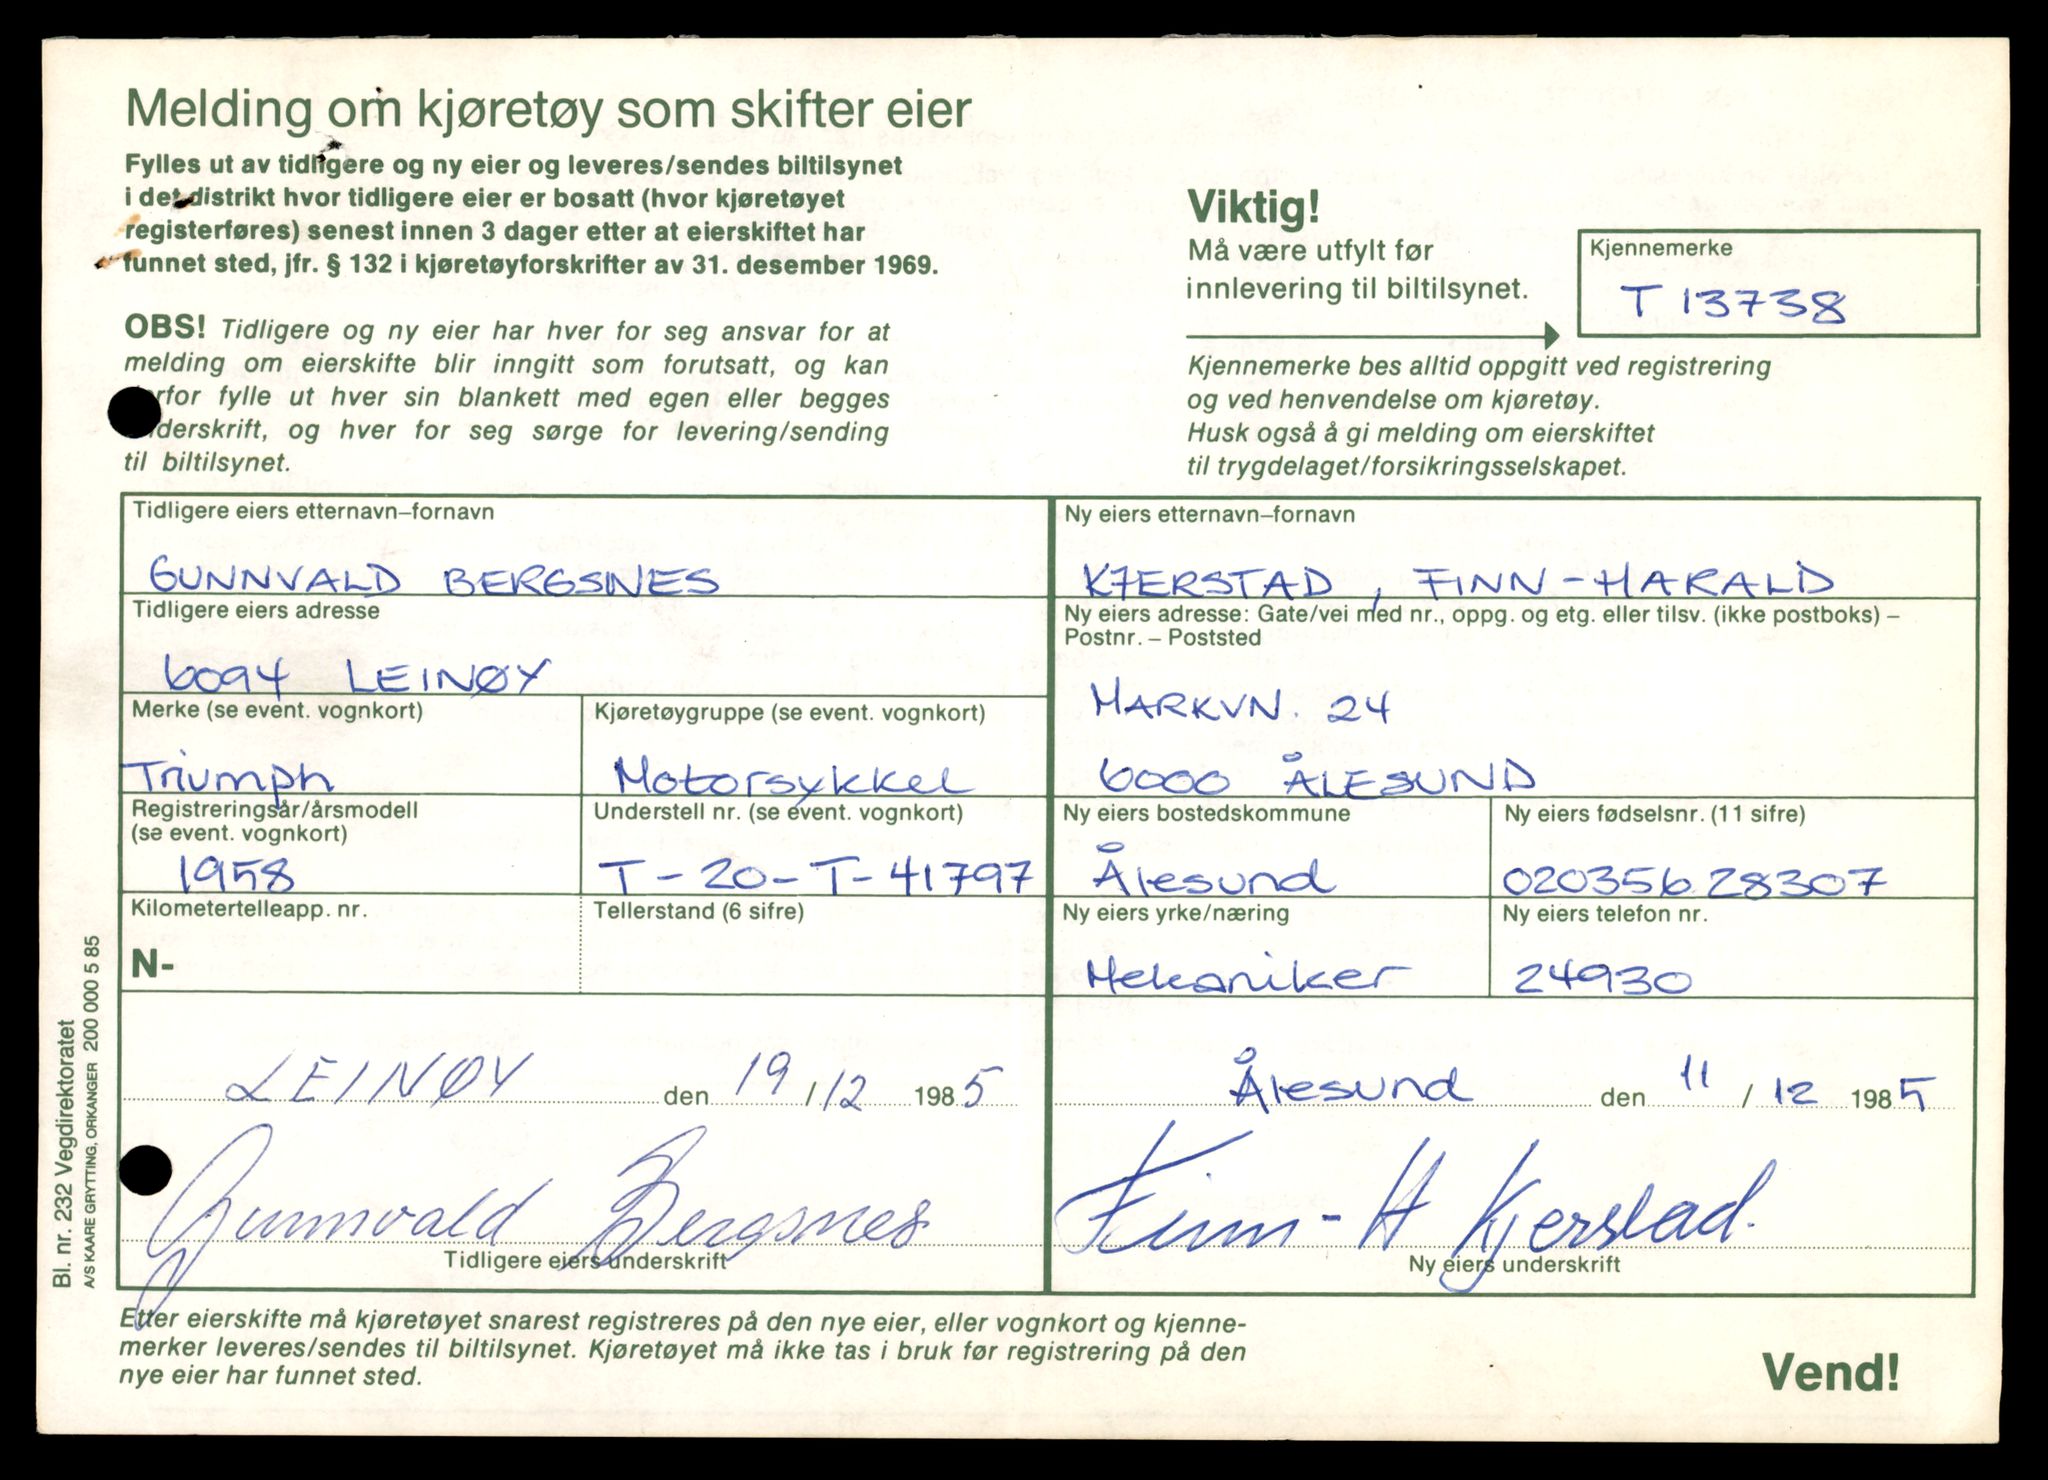 Melding om kjøretøy som skifter eier
Fylles ut av tidligere og ny eier og leveres/sendes biltilsynet
i det distrikt hvor tidligere eier er bosatt (hvor kjøretøyet
registerføres) senest innen 3 dager etter at eierskiftet har
funnet sted, jfr. § 132 i kjøretøyforskrifter av 31. desember 1969.
OBS! Tidligere og ny eier har hver for seg ansvar for at
melding om eierskifte blir inngitt som forutsatt, og kan
derfor fylle ut hver sin blankett med egen eller begges
underskrift, og hver for seg sørge for levering/sending
til biltilsynet.
Viktig!
Må være utfylt før
innlevering til biltilsynet.
Kjennemerke
T 13738
Kjennemerke bes alltid oppgitt ved registrering
og ved henvendelse om kjøretøy.
Husk også å gi melding om eierskiftet
til trygdelaget/forsikringsselskapet.
Tidligere eiers etternavn–fornavn
GUNNVALD BERGSNES
Tidligere eiers adresse
6094 LEINØY
Merke (se event. vognkort)
Triumph
Kjøretøygruppe (se event. vognkort)
Motorsykkel
Registreringsår/årsmodell
(se event. vognkort)
1958
Understell nr. (se event. vognkort)
T-20-T-41797
Kilometertelleapp. nr.
N-
Tellerstand (6 sifre)
LEINØY den 19/12 1985
Gunnvald Bergsnes
Tidligere eiers underskrift
Ny eiers etternavn–fornavn
KJERSTAD, FINN-HARALD
Ny eiers adresse: Gate/vei med nr., oppg. og etg. eller tilsv. (ikke postboks) –
Postnr. – Poststed
MARKVN. 24
6000 ÅLESUND
Ny eiers bostedskommune
Ålesund
Ny eiers fødselsnr. (11 sifre)
020356 28307
Ny eiers yrke/næring
Mekaniker
Ny eiers telefon nr.
24930
Ålesund den 11 / 12 1985
Finn-H Kjerstad.
Ny eiers underskrift
Etter eierskifte må kjøretøyet snarest registreres på den nye eier, eller vognkort og kjenne-
merker leveres/sendes til biltilsynet. Kjøretøyet må ikke tas i bruk før registrering på den
nye eier har funnet sted.
Vend!
Bl. nr. 232 Vegdirektoratet
A/S KAARE GRYTTING, ORKANGER 200 000 5 85